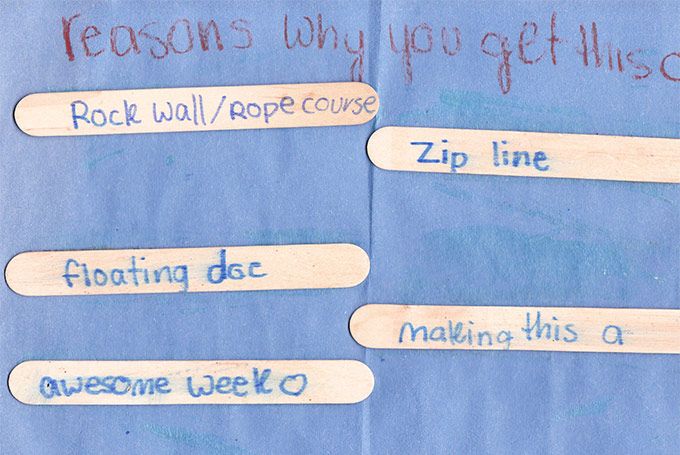 reasons why you get this
Rock wall/Rope course
Zip line
floating doc
making this a
awesome week ♡